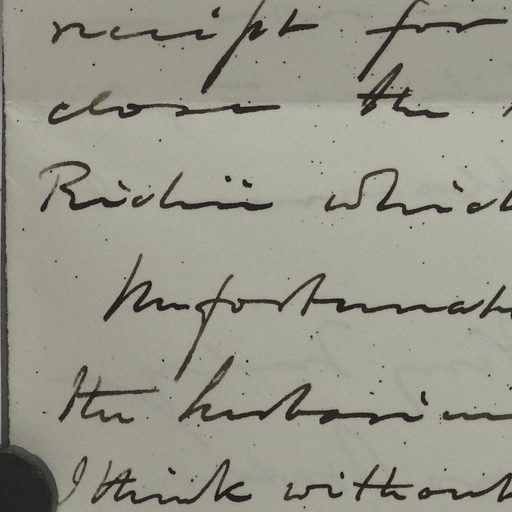 receipt for
close the
Ridii which
Unfortunate
the herbarium
I think without